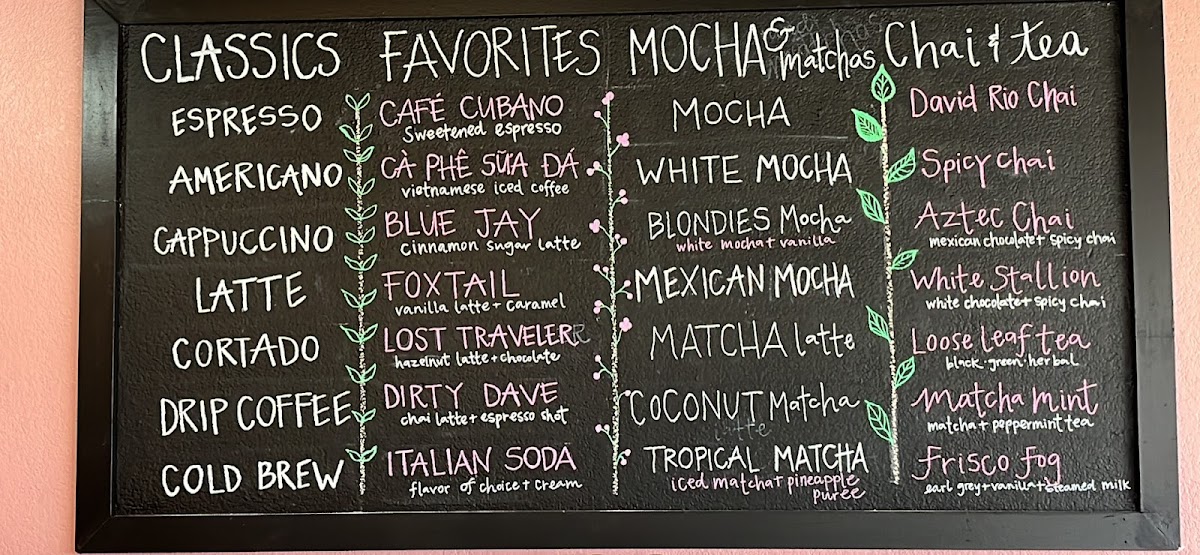 CLASSICS
ESPRESSO
AMERICANO
CAPPUCCINO
LATTE
CORTADO
DRIP COFFEE
COLD BREW
FAVORITES
CAFÉ CUBANO
Sweetened espresso
CÀ PHÊ SỮA ĐÁ
vietnamese iced coffee
BLUE JAY
cinnamon sugar latte
FOXTAIL
vanilla latte + caramel
LOST TRAVELER
hazelnut latte + chocolate
DIRTY DAVE
chai latte + espresso shot
ITALIAN SODA
flavor of choice + cream
MOCHA & matchas
MOCHA
WHITE MOCHA
BLONDIES Mocha
white mocha + vanilla
MEXICAN MOCHA
MATCHA latte
COCONUT Matcha
latte
TROPICAL MATCHA
iced matcha + pineapple
puree
Chai & tea
David Rio Chai
Spicy chai
Aztec Chai
mexican chocolate + spicy chai
White Stallion
white chocolate + spicy chai
Loose leaf tea
black · green · herbal
Matcha mint
matcha + peppermint tea
Frisco Fog
earl grey + vanilla + steamed milk